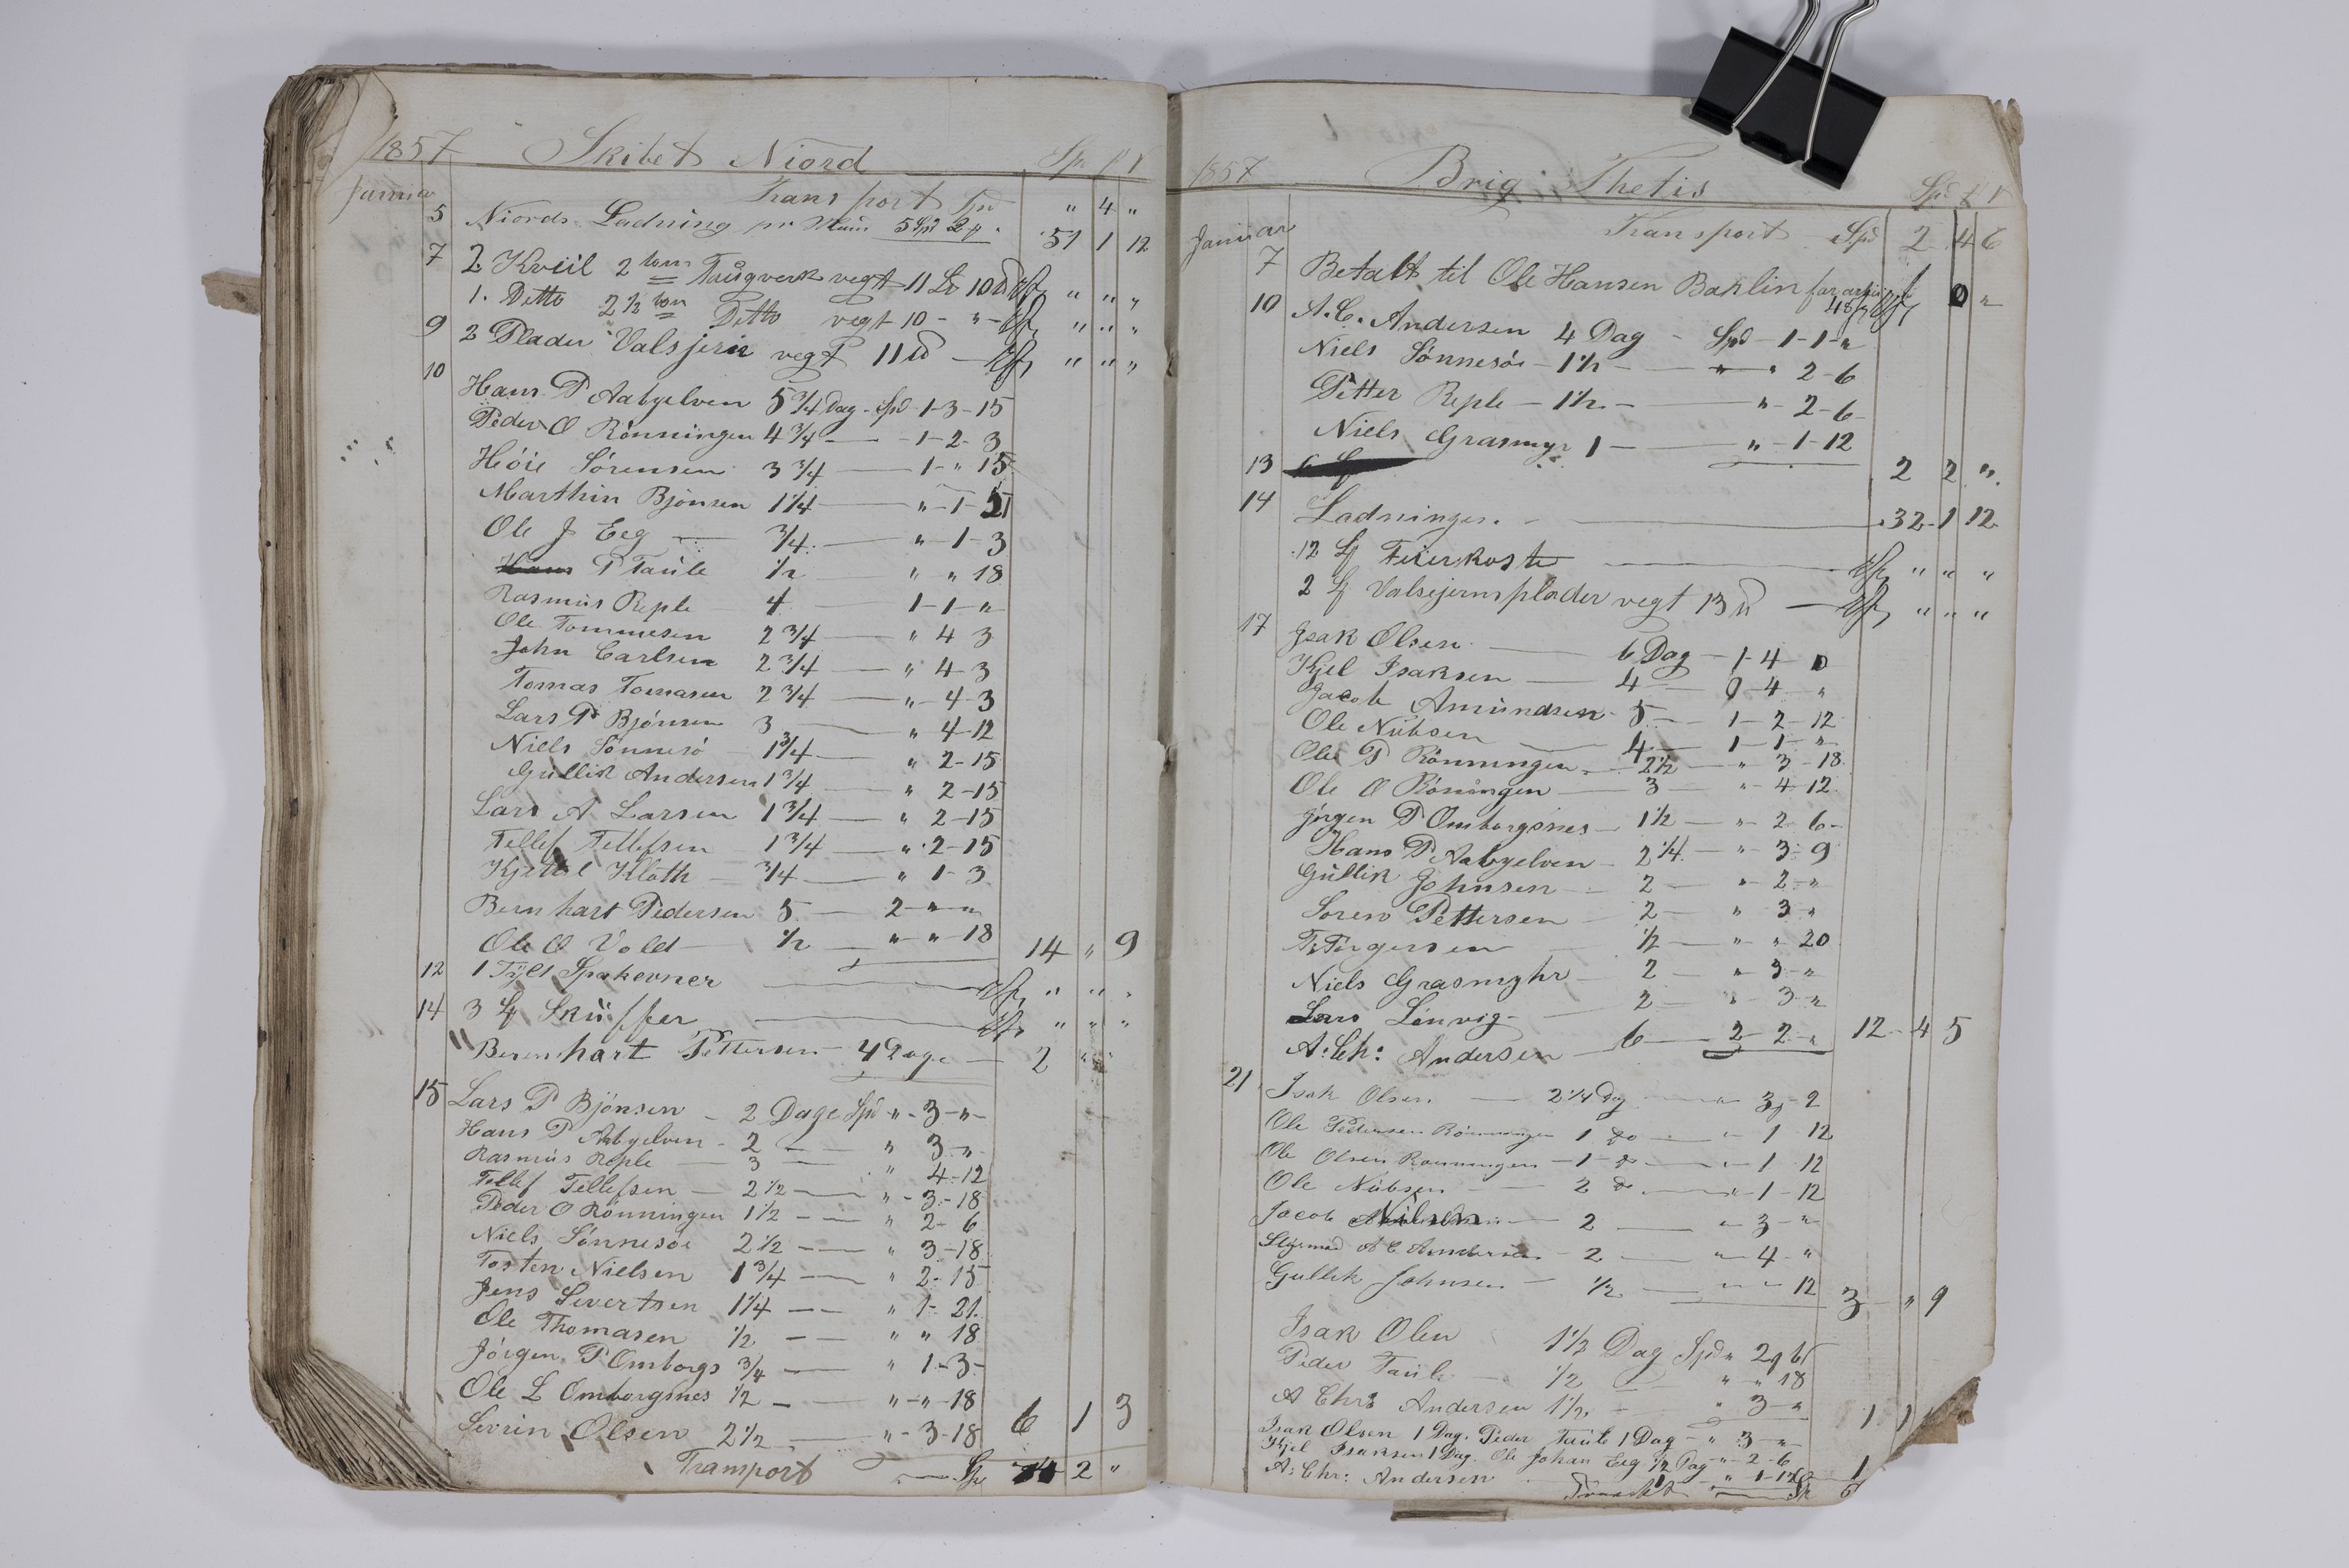 1857 Skibet Niord Sp ƒ ſ
Januar Transport Spd " 4 "
5 Niords Ladning pr 51 1 12
7 2 Kveil 2 tom Taugverk vegt 11 10 " " "
1. Ditto 2½ tom Ditto vegt 10 - " - " " "
9 2 Plader Valsjern vegt 11 " " "
10
Hans P Aabyelven 5 3/4 Dag - Spd - 1-3-15
Peder O Rönningen 4 3/4 — 1-2-3
Höie Sörensen 3 3/4 — 1-"-15
Marthin Bjönsen 1 1/4 — "-1-21
Ole J Eeg — 3/4 — "-1-3
P Taule 1/2 " " 18
Rasmus Reple 4 1-1-"
Ole Tommesen 2 3/4 — " 4 3
John Carlsen 2 3/4 — " 4-3
Tomas Tomasen 2 3/4 — "-4-3
Lars P Bjönsen 3 — " 4-12
Niels Sönnesö 1 3/4 — " 2-15
Gullik Andersen 1 3/4 " 2-15
Lars A Larsen 1 3/4 — " 2-15
Tellef Tellefsen 1 3/4 — " 2-15
Kjettel Klath — 3/4 — " 1-3
Bernhart Pedersen 5 — 2-"-"
Ole O Vold — 1/2 — "-"-18 14 " 9
12 1 Tylt Spakevner — " " "
14 3 Skuffer — " " "
" Bernhart Pettersen - 4 Dage — 2 " "
15 Lars P Bjönsen - 2 Dage Spd "-3-"
Hans P Aabyelven - 2 — " 3-"
Rasmus Reple — 3 — " 4-12
Tellef Tellefsen — 2 1/2 — "-3-18
Peder O Rönningen 1 1/2 - — " 2-6
Niels Sönnesöe 2 1/2 - — " 3-18
Tosten Nielsen 1 3/4 — " 2-15
Jens Sivertsen 1 1/4 — " 1-21
Ole Thomasen 1/2 — " " 18
Jörgen P Omborgs 3/4 — " 1-3-
Ole L Omborgsnes 1/2 — "-"-18
Sevrin Olsen 2 1/2 "-3-18 6 1 3
Transport — 74 2 "
1857 Brig Thetis Spd ƒ ſ
Januar Transport Spd 2 4 6
7 Betalt til Ole Hansen Baklin "
10 A.C. Andersen 4 Dag - Spd - 1-1-"
Niels Sönnesöe - 1 1/2 — " 2-6
Petter Reple - 1 1/2 - " 2-6
Niels Grasmyr 1 — "-1-12
13 2 2 "
14 Ladningen — 32-1 12
12 Feierkoste — " " "
2 Valsjernsplader vegt 13 — " " "
17 Isak Olsen — 6 Dag - 1-4 0
Kjel Isaksen — 4 — 0-4-"
Jacob Amundsen - 5 — 1-2-12
Ole Nübsen — 4 — 1-1-"
Ole P Rönningen — 2 1/2 — " 3-18
Ole O Röningen — 3 — " 4-12
Jörgen P Omborgsnes — 1 1/2 — " 2 6-
Hans P Aabyelven - 2 1/4 - " 3-9
Gullik Johnsen — 2 — " 2-"
Sören Pettersen — 2 — " 3-"
1/2 — " " 20
Niels Grasmyhr — 2 — " 3-"
Lars Lönvig — 2 — " 3-"
A: Ch: Andersen — 6 — 2-2-" 12-4 5
21 Isak Olsen — 2 1/4 Dag — " 3-2
Ole Pedersen Rönningen 1 do — " 1 12
Ole Olsen Rönningen - 1 - do — "-1 12
Ole Nübsen — 2 do — "-1-12
Jacob Nilsen — 2 — " 3-"
Styrmd A C Andersen - 2 — " 4 "
Gullik Johnsen — 1/2 — "-"-12 3 " 9
Isak Olsen 1 1/2 Dag Spd " 2 6
Peder Taule — 1/2 — " " 18
A Chr: Andersen 1 1/2 - " 3-" 1 1
Isak Olsen 1 Dag. Peder Taule 1 Dag - " 3-"
Kjel Isaksen 1 Dag. Ole Johan Eeg 1/2 Dag - " 2-6
A: Chr: Andersen 1 - " 1-12 1